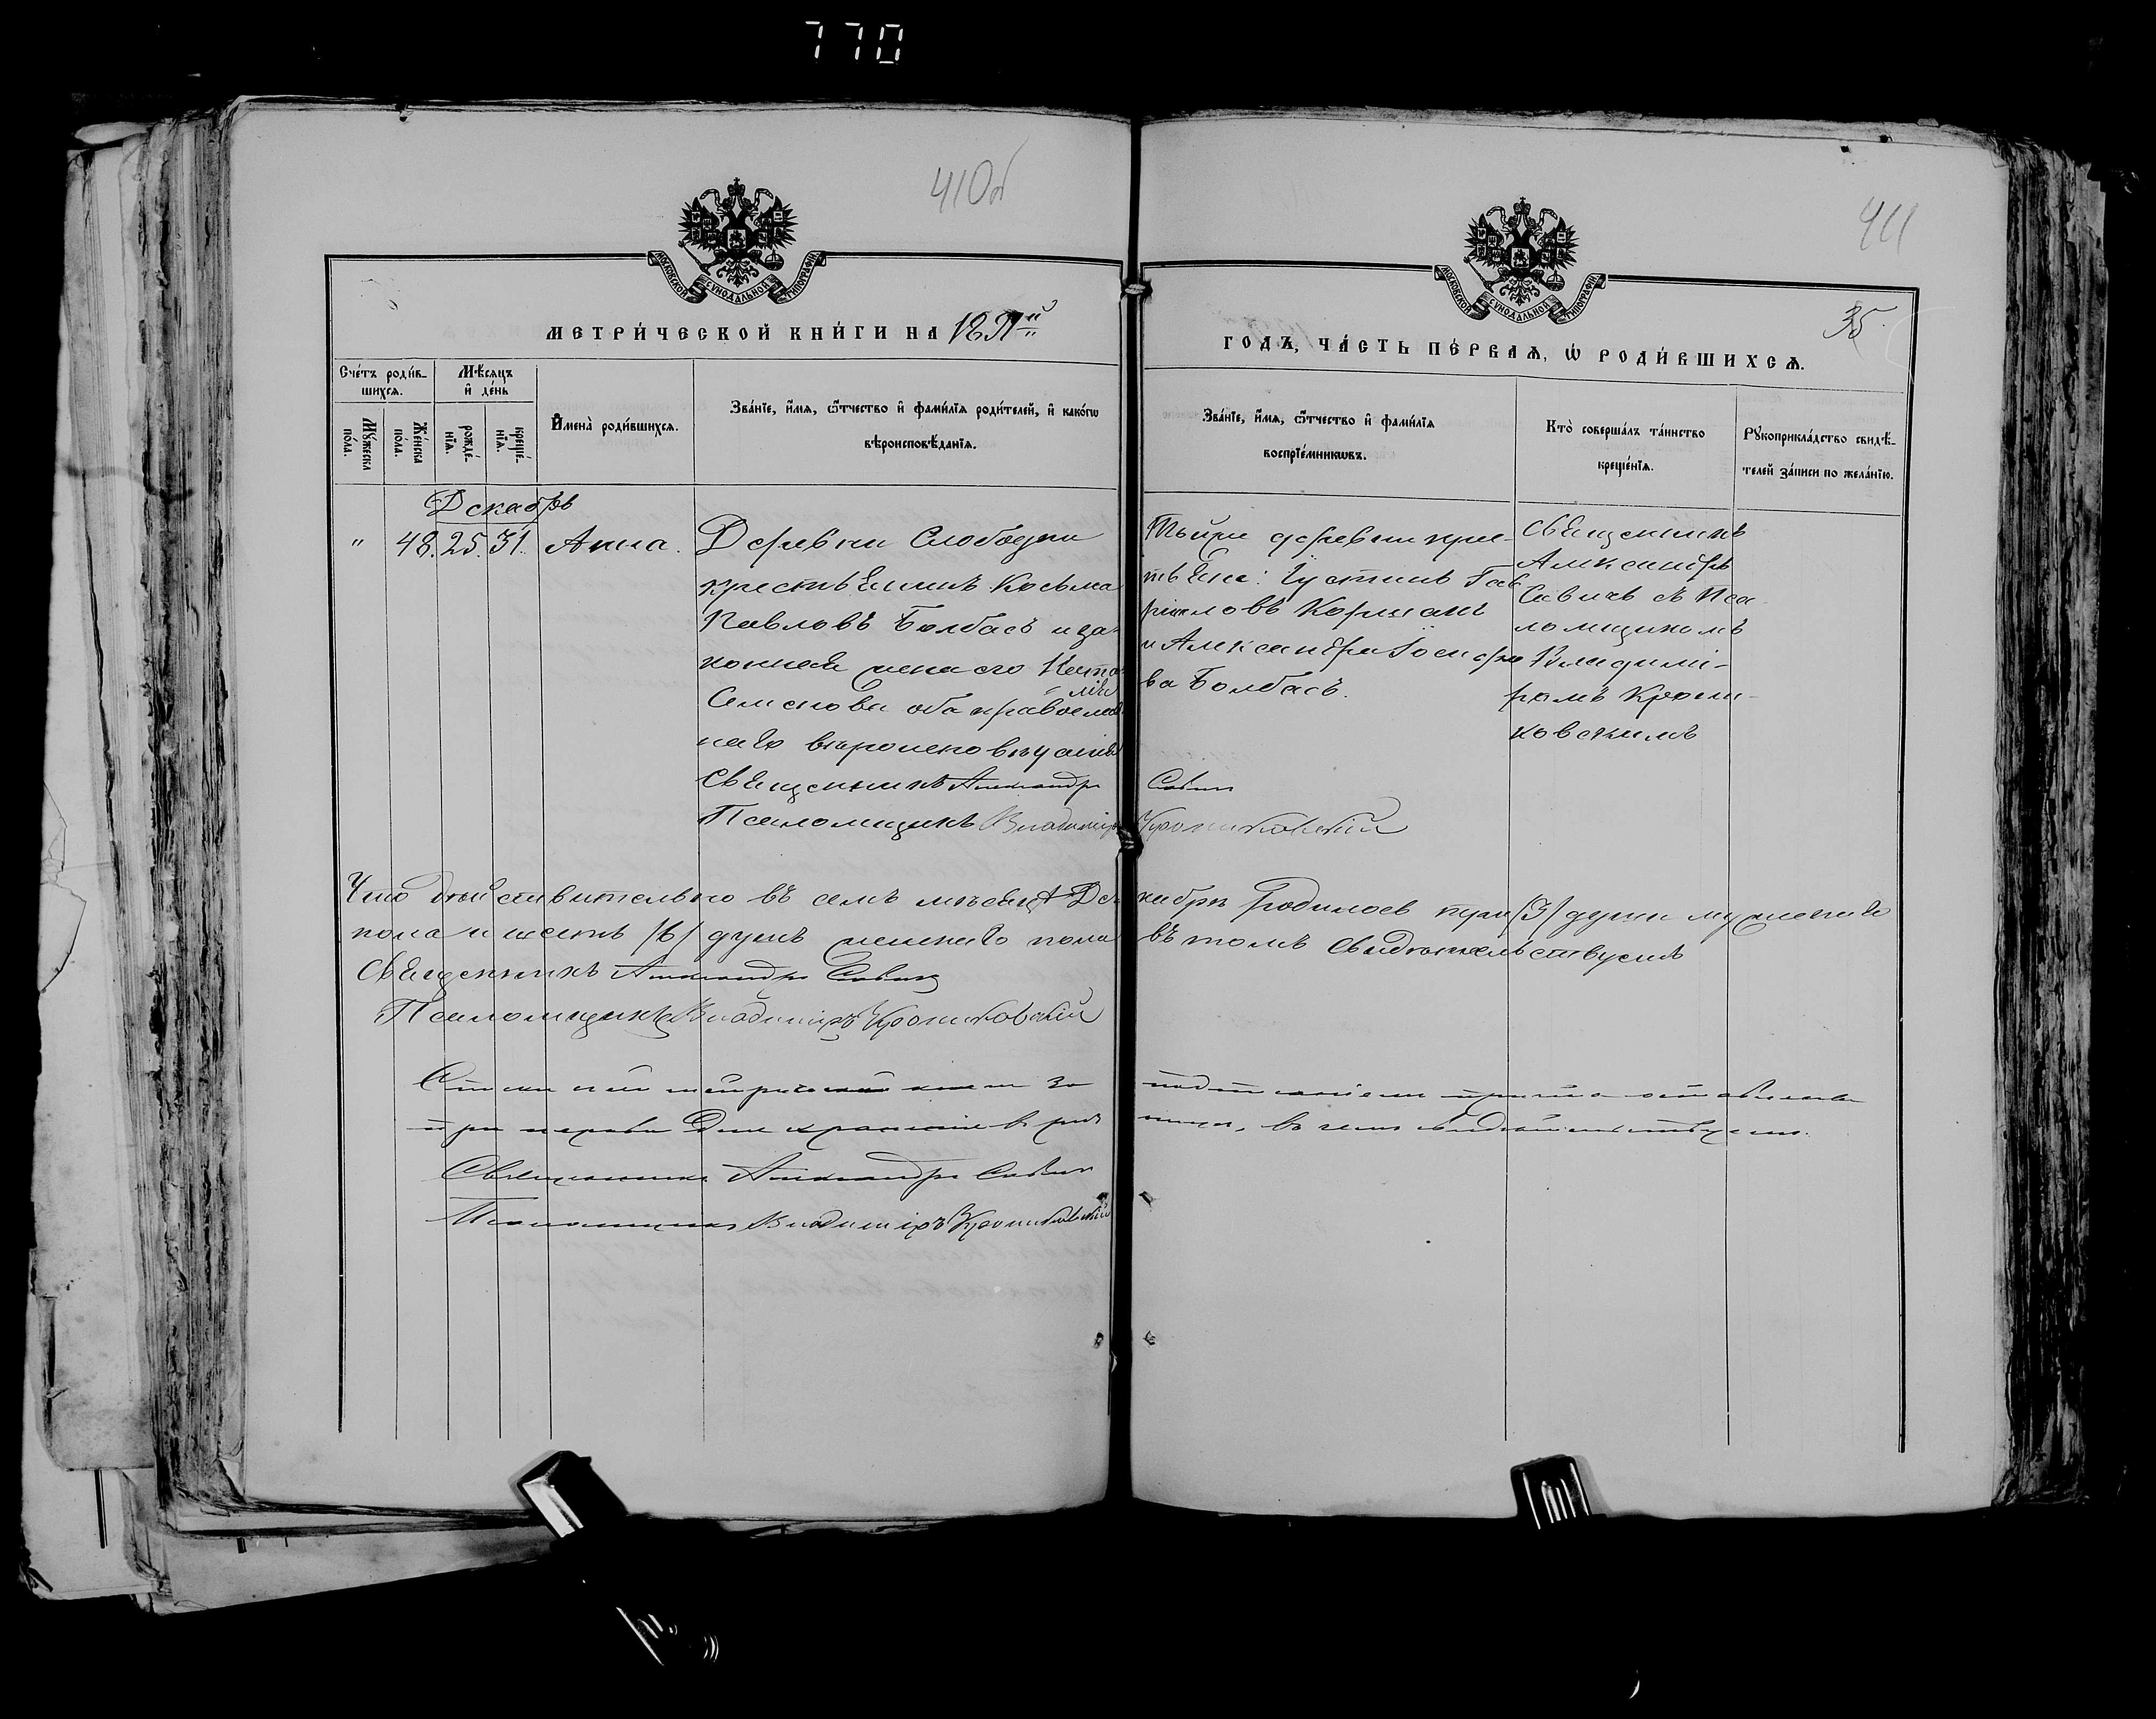 770
410об
411
МОСКОВСКОЙ СѴНОДАЛЬНОЙ ТИПОГРАФІИ
МОСКОВСКОЙ СѴНОДАЛЬНОЙ ТИПОГРАФІИ
35.
МЕТРИ́ЧЕСКОЙ КНИ́ГИ НА 1891й
ГОДЪ, ЧА́СТЬ ПЕ́РВАѦ, Ѽ РОДИ́ВШИХСѦ.
Сче́тъ роди́в-
шихсѧ.
Мꙋ́жеска по́ла.
Же́нска по́ла.
Мѣ́сѧцъ
и҆ де́нь
рожде́-
нїѧ.
креще́-
нїѧ.
И҆мена̀ роди́вшихсѧ.
Зва́нїе, и҆́мѧ, ѻ҆́тчество и҆ фами́лїѧ роди́телей, и҆ како́гѡ
вѣроисповѣ́данїѧ.
Зва́нїе, и҆́мѧ, ѻ҆́тчество и҆ фами́лїѧ
воспрїе́мникѡвъ.
Кто̀ соверша́лъ та́инство
креще́нїѧ.
Рꙋкоприкла́дство свидѣ́-
телей за́писи по жела́нїю.
Декабрь
" 48. 25. 31. Анна.
Деревни Слободки
крестьянинъ Косьма
Павловъ Болбасъ и за-
конная жена его
Семенова оба православ-
наго вѣроисповѣданія
Священникъ Александръ Савичъ
Псаломщикъ Владиміръ Крониковскій
Той же деревни кре-
тьяне: Іустинъ Гав
ріиловъ Коршакъ
и Александра Іосифо
ва Болбасъ.
Священникъ
Александръ
Савичъ съ Пса-
ломщикомъ
Владимі-
ромъ Крони-
ковскимъ
Что дѣйствительно въ семъ мѣсяцѣ Декабрѣ родилось три /3/ души мужескаго
пола и шесть /6/ душъ женскаго пола въ томъ свидѣтельствуемъ
Священникъ Александръ Савичъ
Псаломщикъ Владиміръ Крониковскій
Священникъ Александръ Савичъ
Псаломщикъ Владиміръ Крониковскій